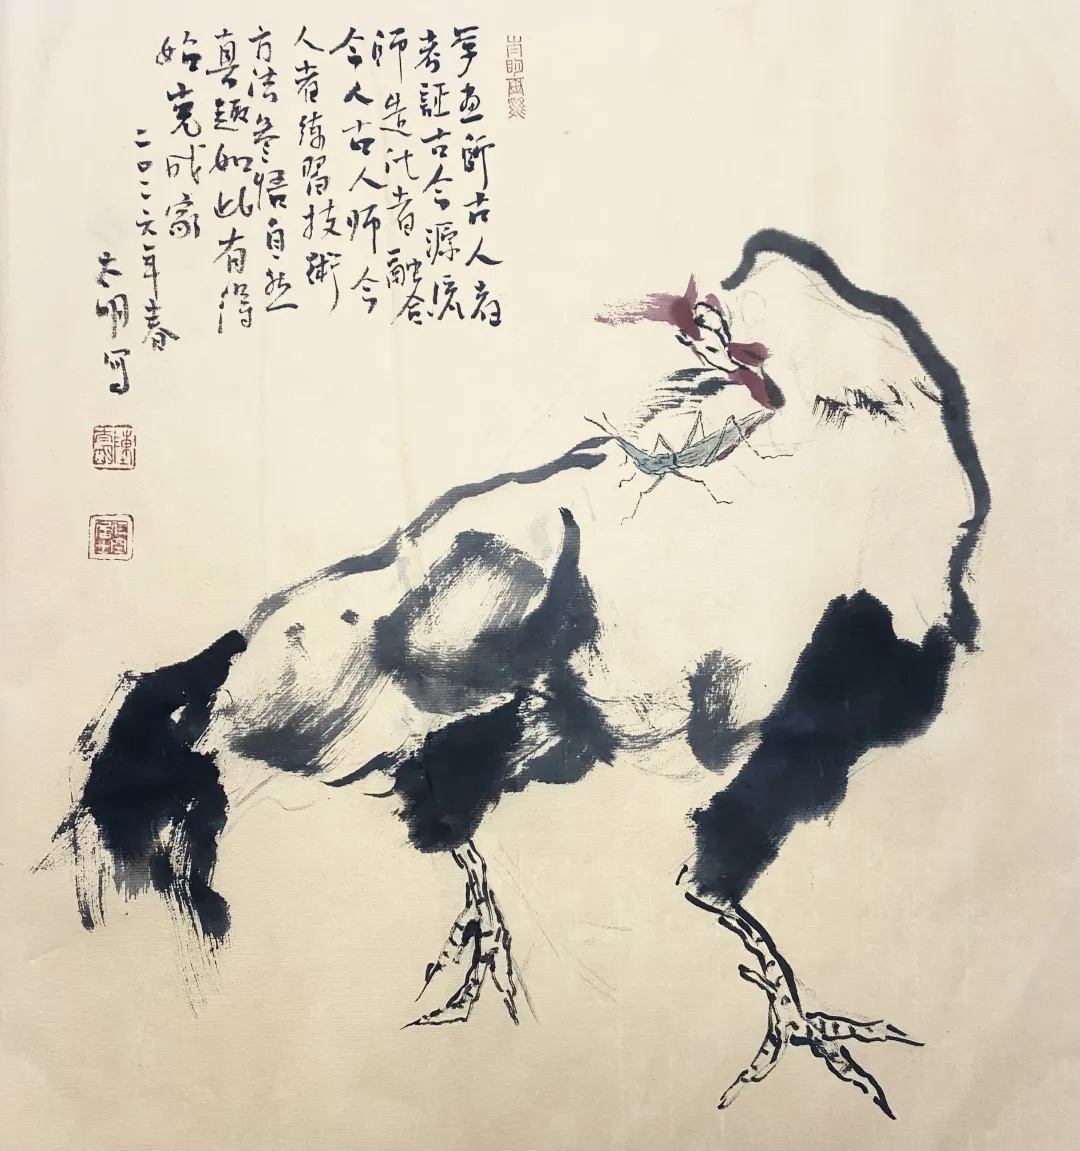 学画师古人者
考証古今源流
师造化者融合
今人古人师今
人者练習技術
方法参悟自然
真趣如此有得
始克成家
二〇二六年春
明写